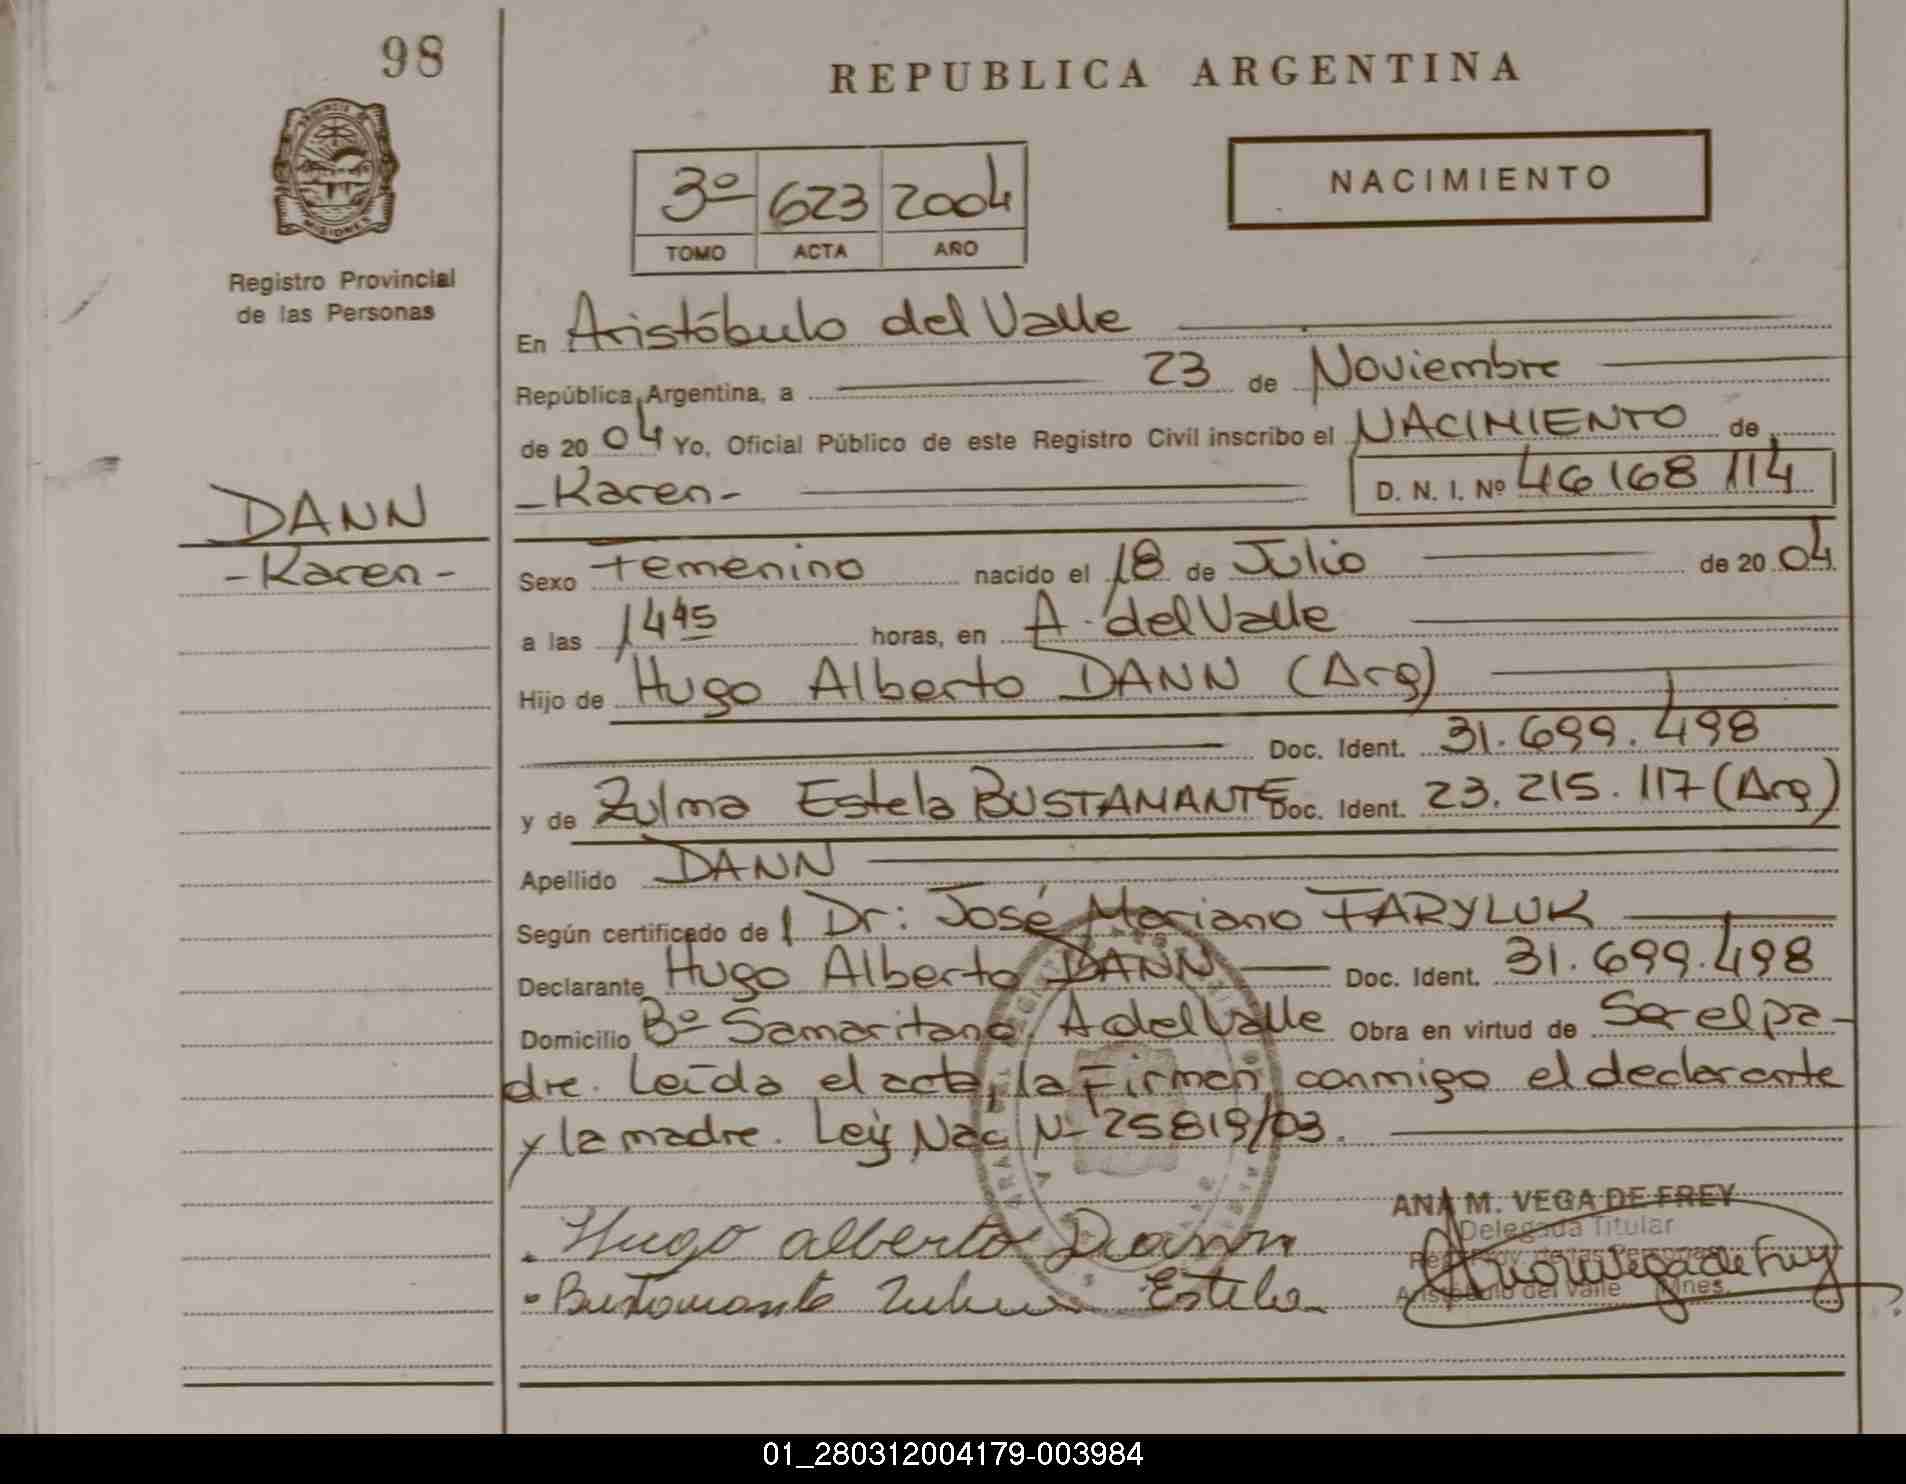 98
REPUBLICA ARGENTINA
PROVINCIA DE
MISIONES
Registro Provincial
de las Personas
3º 623 2004
TOMO ACTA AÑO
NACIMIENTO
En Aristóbulo del Valle
República Argentina, a 23 de Noviembre
de 2004 Yo, Oficial Público de este Registro Civil inscribo el NACIMIENTO de
- Karen - D. N. I. Nº 46168114
DANN
- Karen -
Sexo Femenino nacido el 18 de Julio de 2004.
a las 14 45 horas, en A. del Valle
Hijo de Hugo Alberto DANN (Arg)
Doc. Ident. 31.699.498
y de Zulma Estela BUSTAMANTE Doc. Ident. 23.215.117 (Arg)
Apellido DANN
Según certificado de l Dr: José Mariano FARYLUK
Declarante Hugo Alberto DANN Doc. Ident. 31.699.498
Domicilio Bº Samaritano A del Valle Obra en virtud de Ser el pa-
dre. Leída el acta, la Firman conmigo el declarante
y la madre. Ley Nac Nº 25819/03.
ANA M. VEGA DE FREY
Delegada Titular
Aristóbulo del Valle Mnes.
Hugo alberto Dann
Bustamante Zulma Estela
01_280312004179-003984